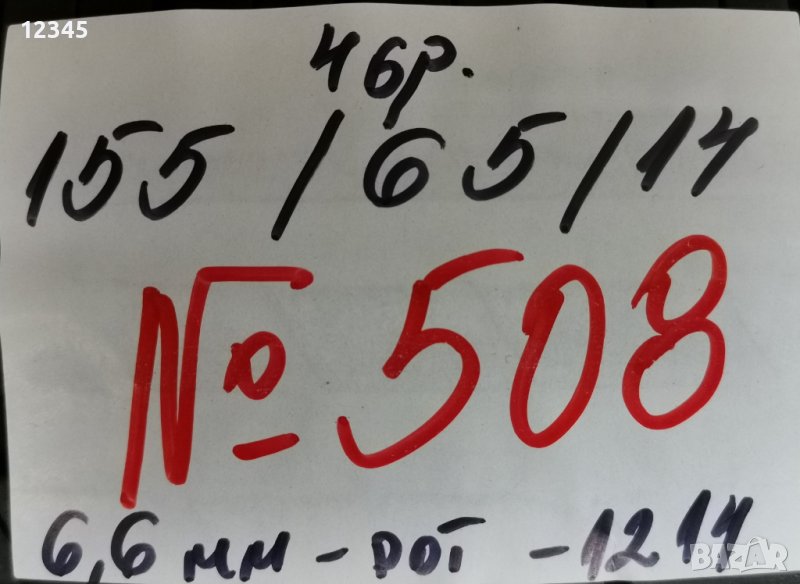 12345
4бр.
155/65/14
№ 508
6,6 мм - DOT - 1214
BAZAR